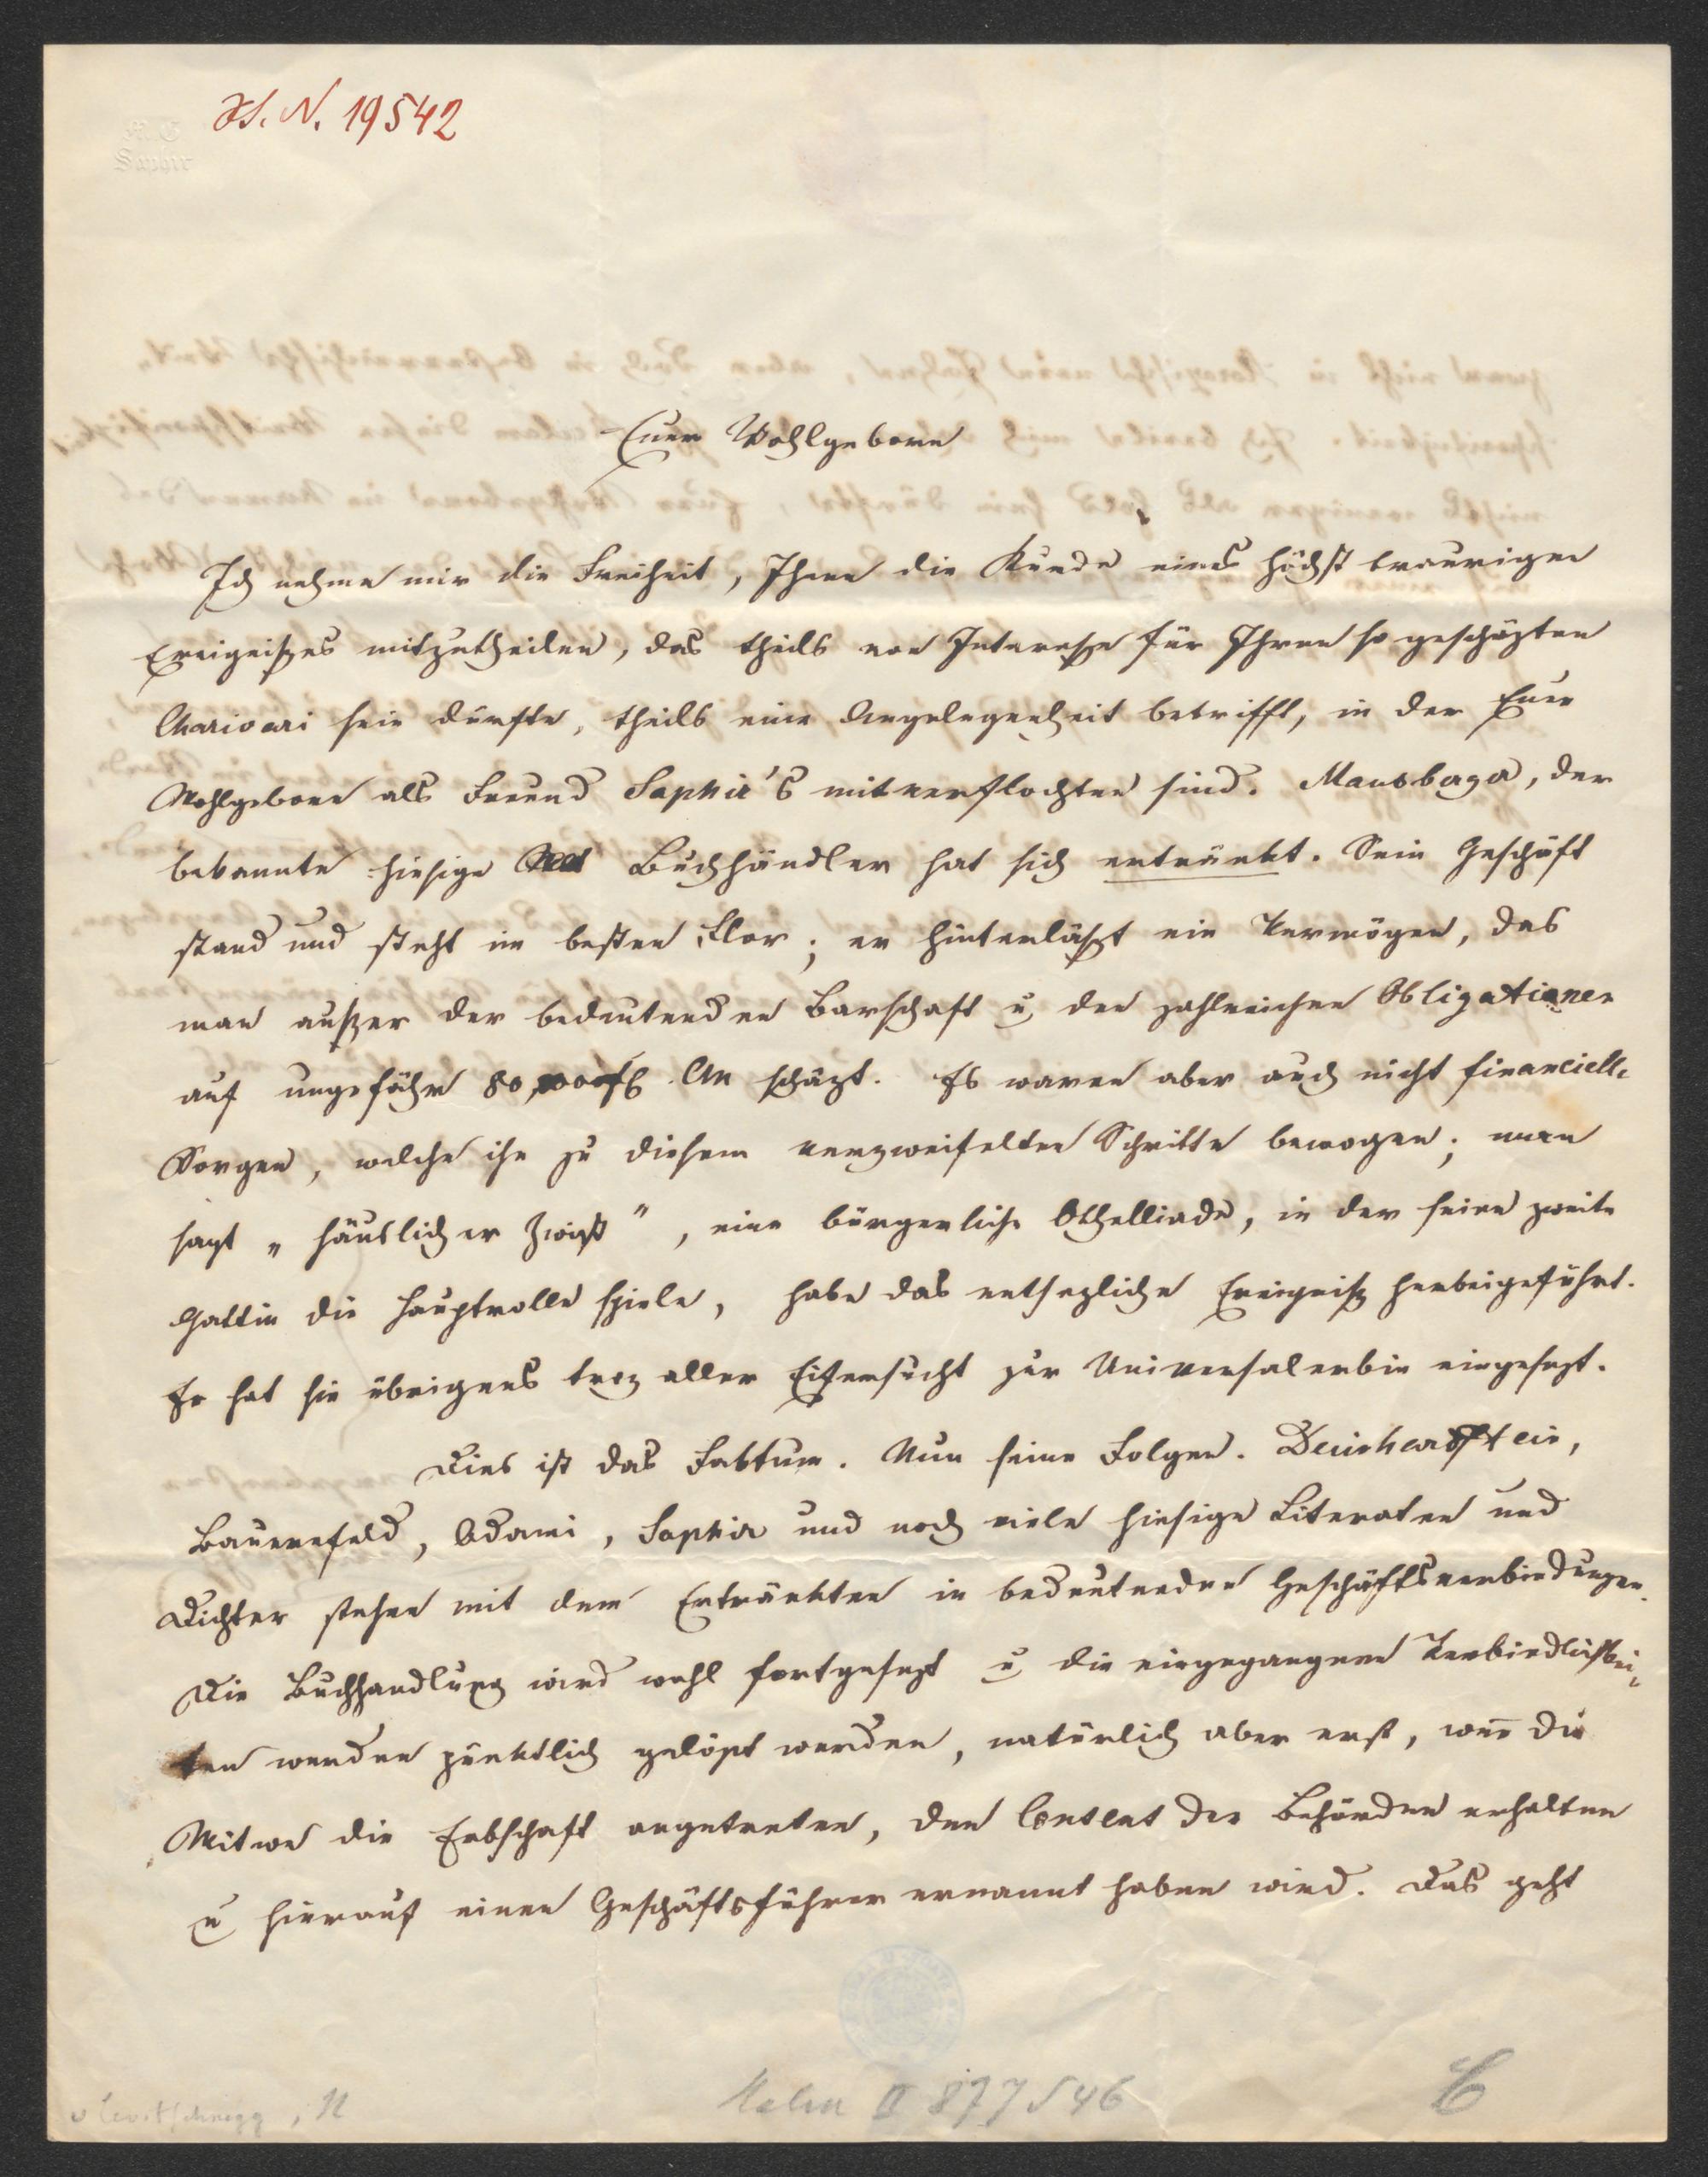 H. N. 19542
M. G.
Saphir
Euer Wohlgeboren
Ich nehme mir die Freiheit, Ihnen die Kunde eines höchst traurigen
Ereignißes mitzutheilen, das theils von Interesse für Ihren so geschäzten
Charivari sein dürfte, theils eine Angelegenheit betrifft, in der Euer
Wohlgeboren als Freund Saphir's mitverflochten sind. Mausberger, der
bekannte hiesige Buchhändler hat sich ertränkt. Sein Geschäft
stand und steht im besten Flor; er hinterläßt ein Vermögen, das
man außer der bedeutenden Barschaft u den zahlreichen Obligationen
auf ungefähr 80,000 fl CM schäzt. Es waren aber auch nicht financielle
Sorgen, welche ihn zu diesem verzweifelten Schritte bewogen; man
sagt „häuslicher Zwist", eine bürgerliche Othelliade, in der seine zweite
Gattin die Hauptrolle spiele, habe das entsezliche Ereigniß herbeigeführt.
Er hat sie übrigens troz aller Eifersucht zur Universalerbin eingesezt.
Dies ist das Faktum. Nun seine Folgen. Deinhardstein,
Bauernfeld, Adami, Saphir und noch viele hiesige Literaten und
Dichter stehen mit dem Ertränkten in bedeutenden Geschäftsverbindungen.
Die Buchhandlung wird wohl fortgesezt u die eingegangenen Verbindlichkei-
ten werden pünktlich gelöst werden, natürlich aber erst, wenn die
Witwe die Erbschaft angetreten, den Consens der Behörden erhalten
u hierauf einen Geschäftsführer ernannt haben wird. Das geht
v Levitschnigg, H
II 877546